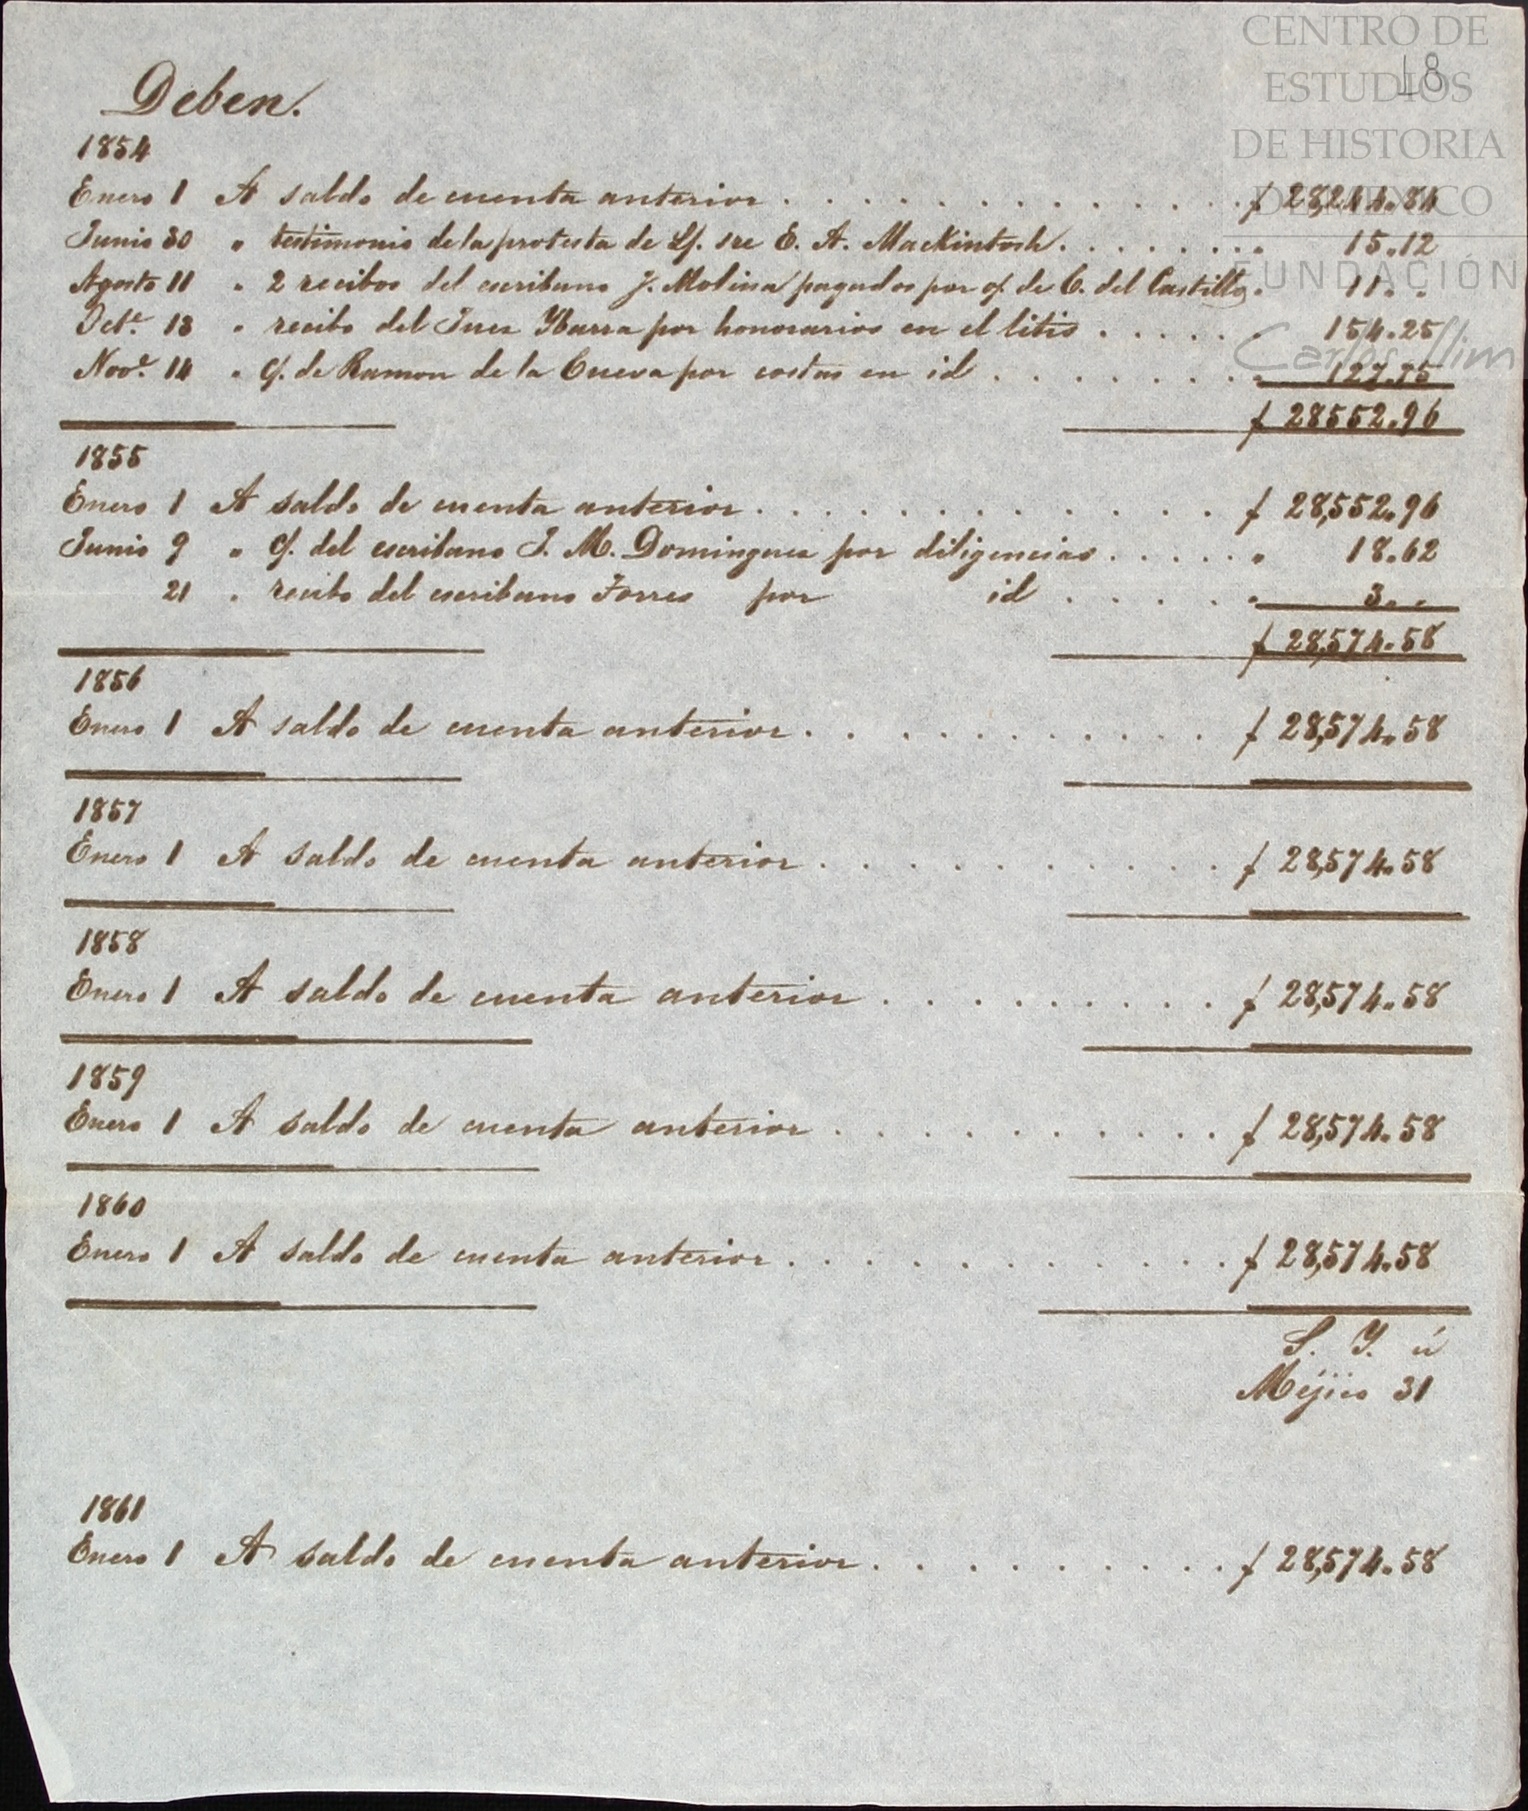 CENTRO DE
ESTUDIOS
DE HISTORIA
DE MÉXICO
FUNDACIÓN
Carlos Slim
18
Deben.
1854
Enero 1 A saldo de cuenta anterior . . . . . . . . . . . . . . $ 28,244.84
Junio 30 " testimonio de la protesta de Lf. sre E. A. Mackintosh . . . . . . . " 15.12
Agosto 11 " 2 recibos del escribano J. Molina pagados por cf. de C. del Castillo " 11 . .
Octe. 18 " recibo del Juez Ybarra por honorarios en el litis . . . . . " 154.25
Nove. 14 " cf. de Ramon de la Cueva por costas en id . . . . . . . " 127.75
$ 28552.96
1855
Enero 1 A saldo de cuenta anterior . . . . . . . . . . . . . . $ 28,552.96
Junio 9 " cf. del escribano J. M. Dominguez por diligencias . . . . . " 18.62
21 " recibo del escribano Torres por id . . . . . " 3 . .
$ 28,574.58
1856
Enero 1 A saldo de cuenta anterior . . . . . . . . . . . . $ 28,574.58
1857
Enero 1 A saldo de cuenta anterior . . . . . . . . . . . $ 28,574.58
1858
Enero 1 A saldo de cuenta anterior . . . . . . . . . . $ 28,574.58
1859
Enero 1 A saldo de cuenta anterior . . . . . . . . . . . $ 28,574.58
1860
Enero 1 A saldo de cuenta anterior . . . . . . . . . . . . $ 28,574.58
S. Y. ú
Méjico 31
1861
Enero 1 A saldo de cuenta anterior . . . . . . . . . . $ 28,574.58